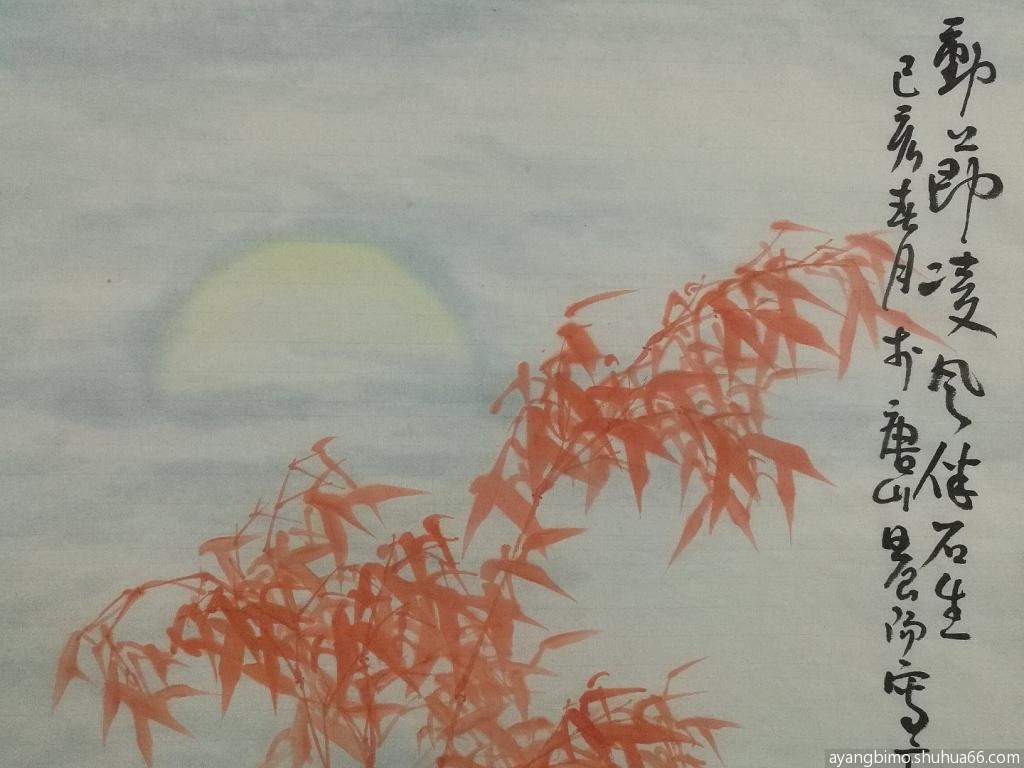 勁節凌风伴石生
己亥春月於唐山晨阳寫
ayangbimo.shuhua66.com